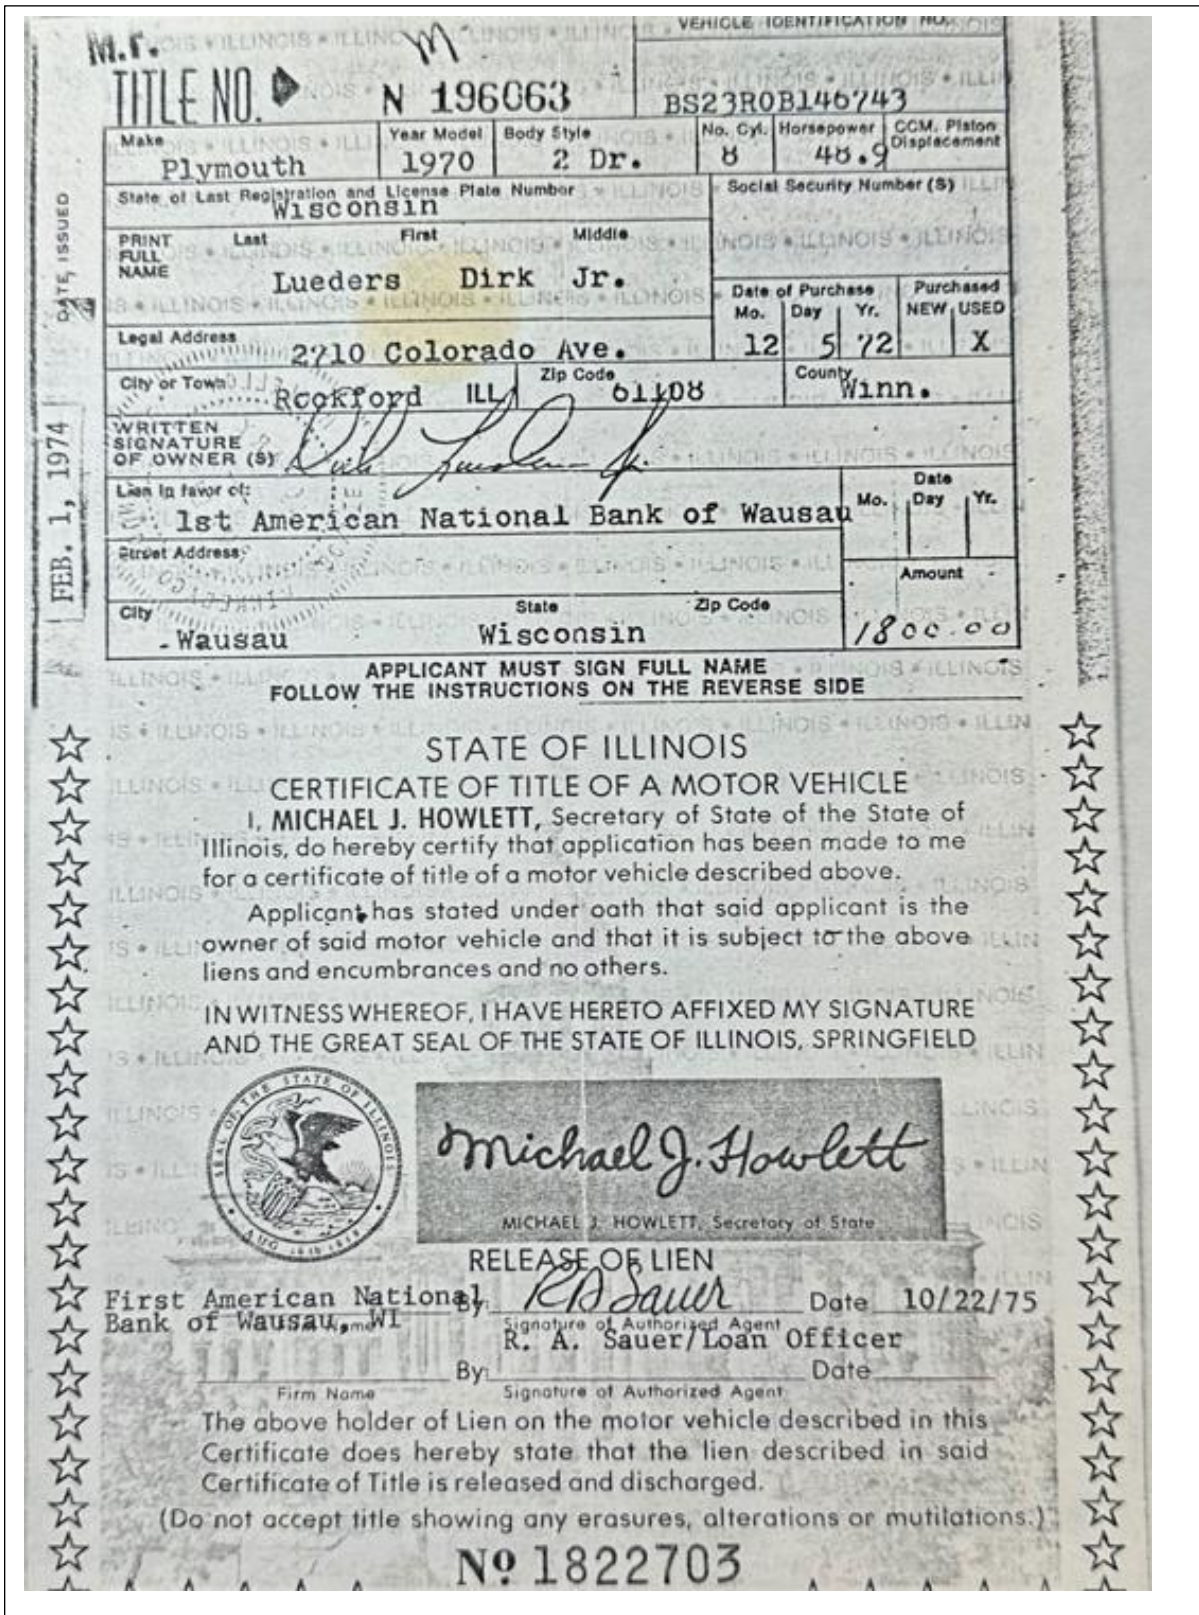 VEHICLE IDENTIFICATION NO.
M.F. M
TITLE NO. N 196063
BS23R0B146743
Make Year Model Body Style No. Cyl. Horsepower CCM. Piston Displacement
Plymouth 1970 2 Dr. 8 48.9
State of Last Registration and License Plate Number Social Security Number (S)
Wisconsin
PRINT FULL NAME Last First Middle
Lueders Dirk Jr.
Date of Purchase Purchased
Mo. Day Yr. NEW USED
Legal Address 2710 Colorado Ave. 12 5 72 X
City or Town Rockford ILL Zip Code 61108 County Winn.
WRITTEN SIGNATURE OF OWNER (S) Dirk Lueders Jr.
Lien in favor of: Date
1st American National Bank of Wausau Mo. Day Yr.
Street Address
Amount
City State Zip Code
Wausau Wisconsin 1800.00
DATE ISSUED
FEB. 1, 1974
APPLICANT MUST SIGN FULL NAME
FOLLOW THE INSTRUCTIONS ON THE REVERSE SIDE
STATE OF ILLINOIS
CERTIFICATE OF TITLE OF A MOTOR VEHICLE
I, MICHAEL J. HOWLETT, Secretary of State of the State of
Illinois, do hereby certify that application has been made to me
for a certificate of title of a motor vehicle described above.
Applicant has stated under oath that said applicant is the
owner of said motor vehicle and that it is subject to the above
liens and encumbrances and no others.
IN WITNESS WHEREOF, I HAVE HERETO AFFIXED MY SIGNATURE
AND THE GREAT SEAL OF THE STATE OF ILLINOIS, SPRINGFIELD
SEAL OF THE STATE OF ILLINOIS
AUG. 26TH 1818
Michael J. Howlett
MICHAEL J. HOWLETT, Secretary of State
RELEASE OF LIEN
First American National By: RA Sauer Date 10/22/75
Bank of Wausau, WI Signature of Authorized Agent
R. A. Sauer/Loan Officer
By: Date
Firm Name Signature of Authorized Agent
The above holder of Lien on the motor vehicle described in this
Certificate does hereby state that the lien described in said
Certificate of Title is released and discharged.
(Do not accept title showing any erasures, alterations or mutilations.)
Nº 1822703